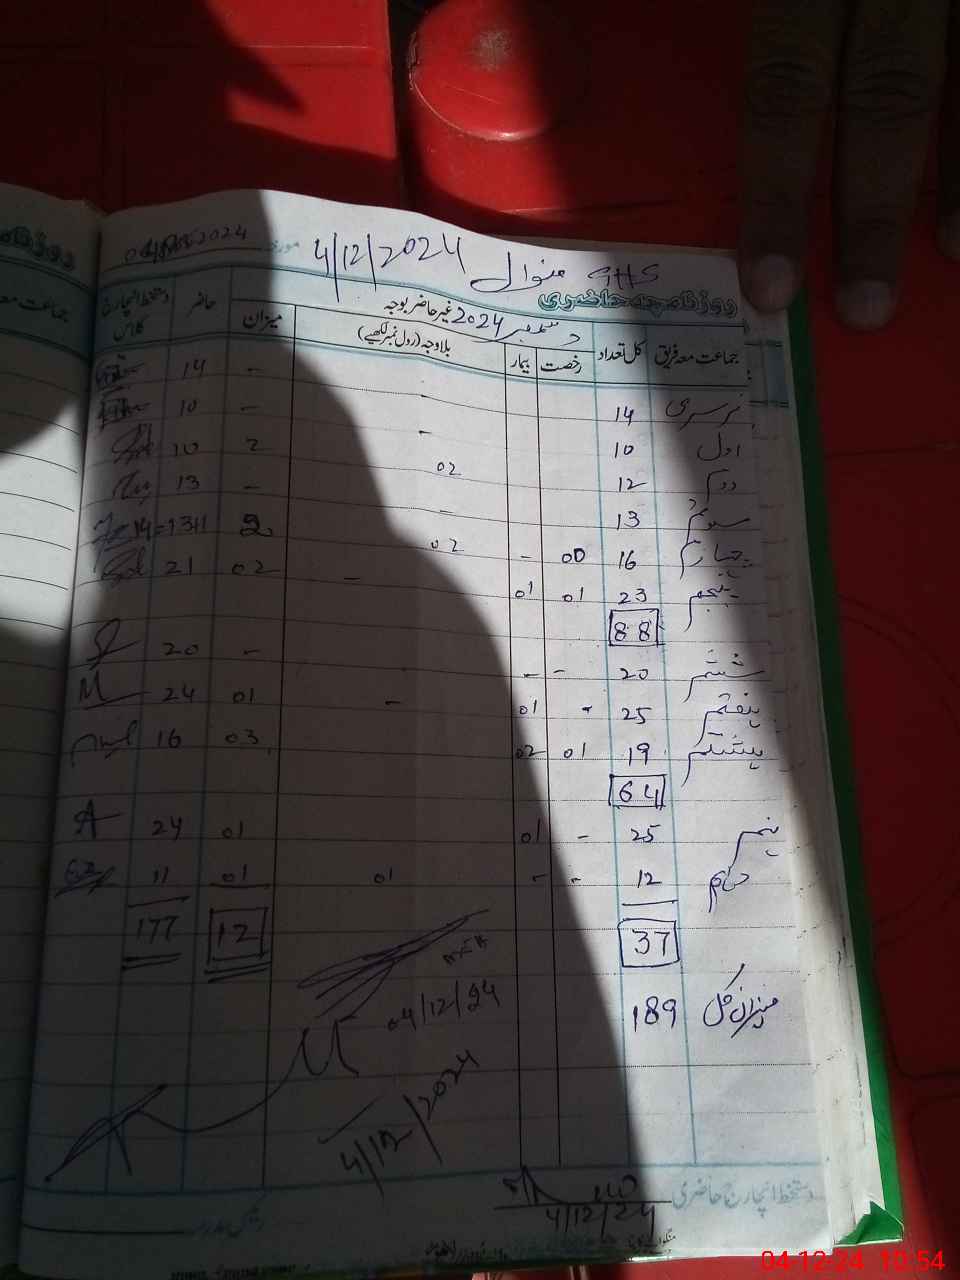 GHS منوال 4/12/2024 مورخہ
روزنامچہ حاضری
دسمبر 2024
جماعت معہ فریق کل تعداد غیر حاضر بوجہ میزان حاضر دستخط انچارج کلاس
رخصت بیمار بلاوجہ (رول نمبر لکھیے)
نرسری 14 - - 14
اول 10 - - 10
دوم 12 02 2 10
سوئم 13 - - 13
چہارم 16 00 - 02 2 14
پنجم 23 01 01 - 02 21
88
ششم 20 - - - 20
ہفتم 25 - 01 - 01 24
ہشتم 19 01 02 03 16
64
نہم 25 - 01 01 24
دہم 12 - - 01 01 11
37 12 177
میزان کل 189
04/12/24
4/12/2024
دستخط انچارج حاضری
4/12/24
04-12-24 10:54